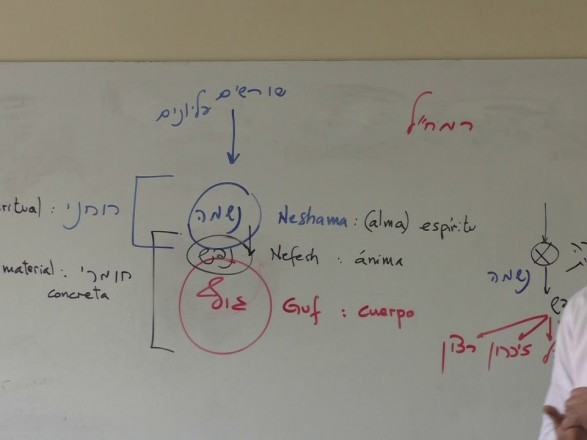 שורשים עליונים
רמח"ל
ritual : רוחני
נשמה
Neshama : (alma) espíritu
נפש
Nefesh : ánima
material : חומרי
concreta
גוף
Guf : cuerpo
נשמה
רצון זיכרון